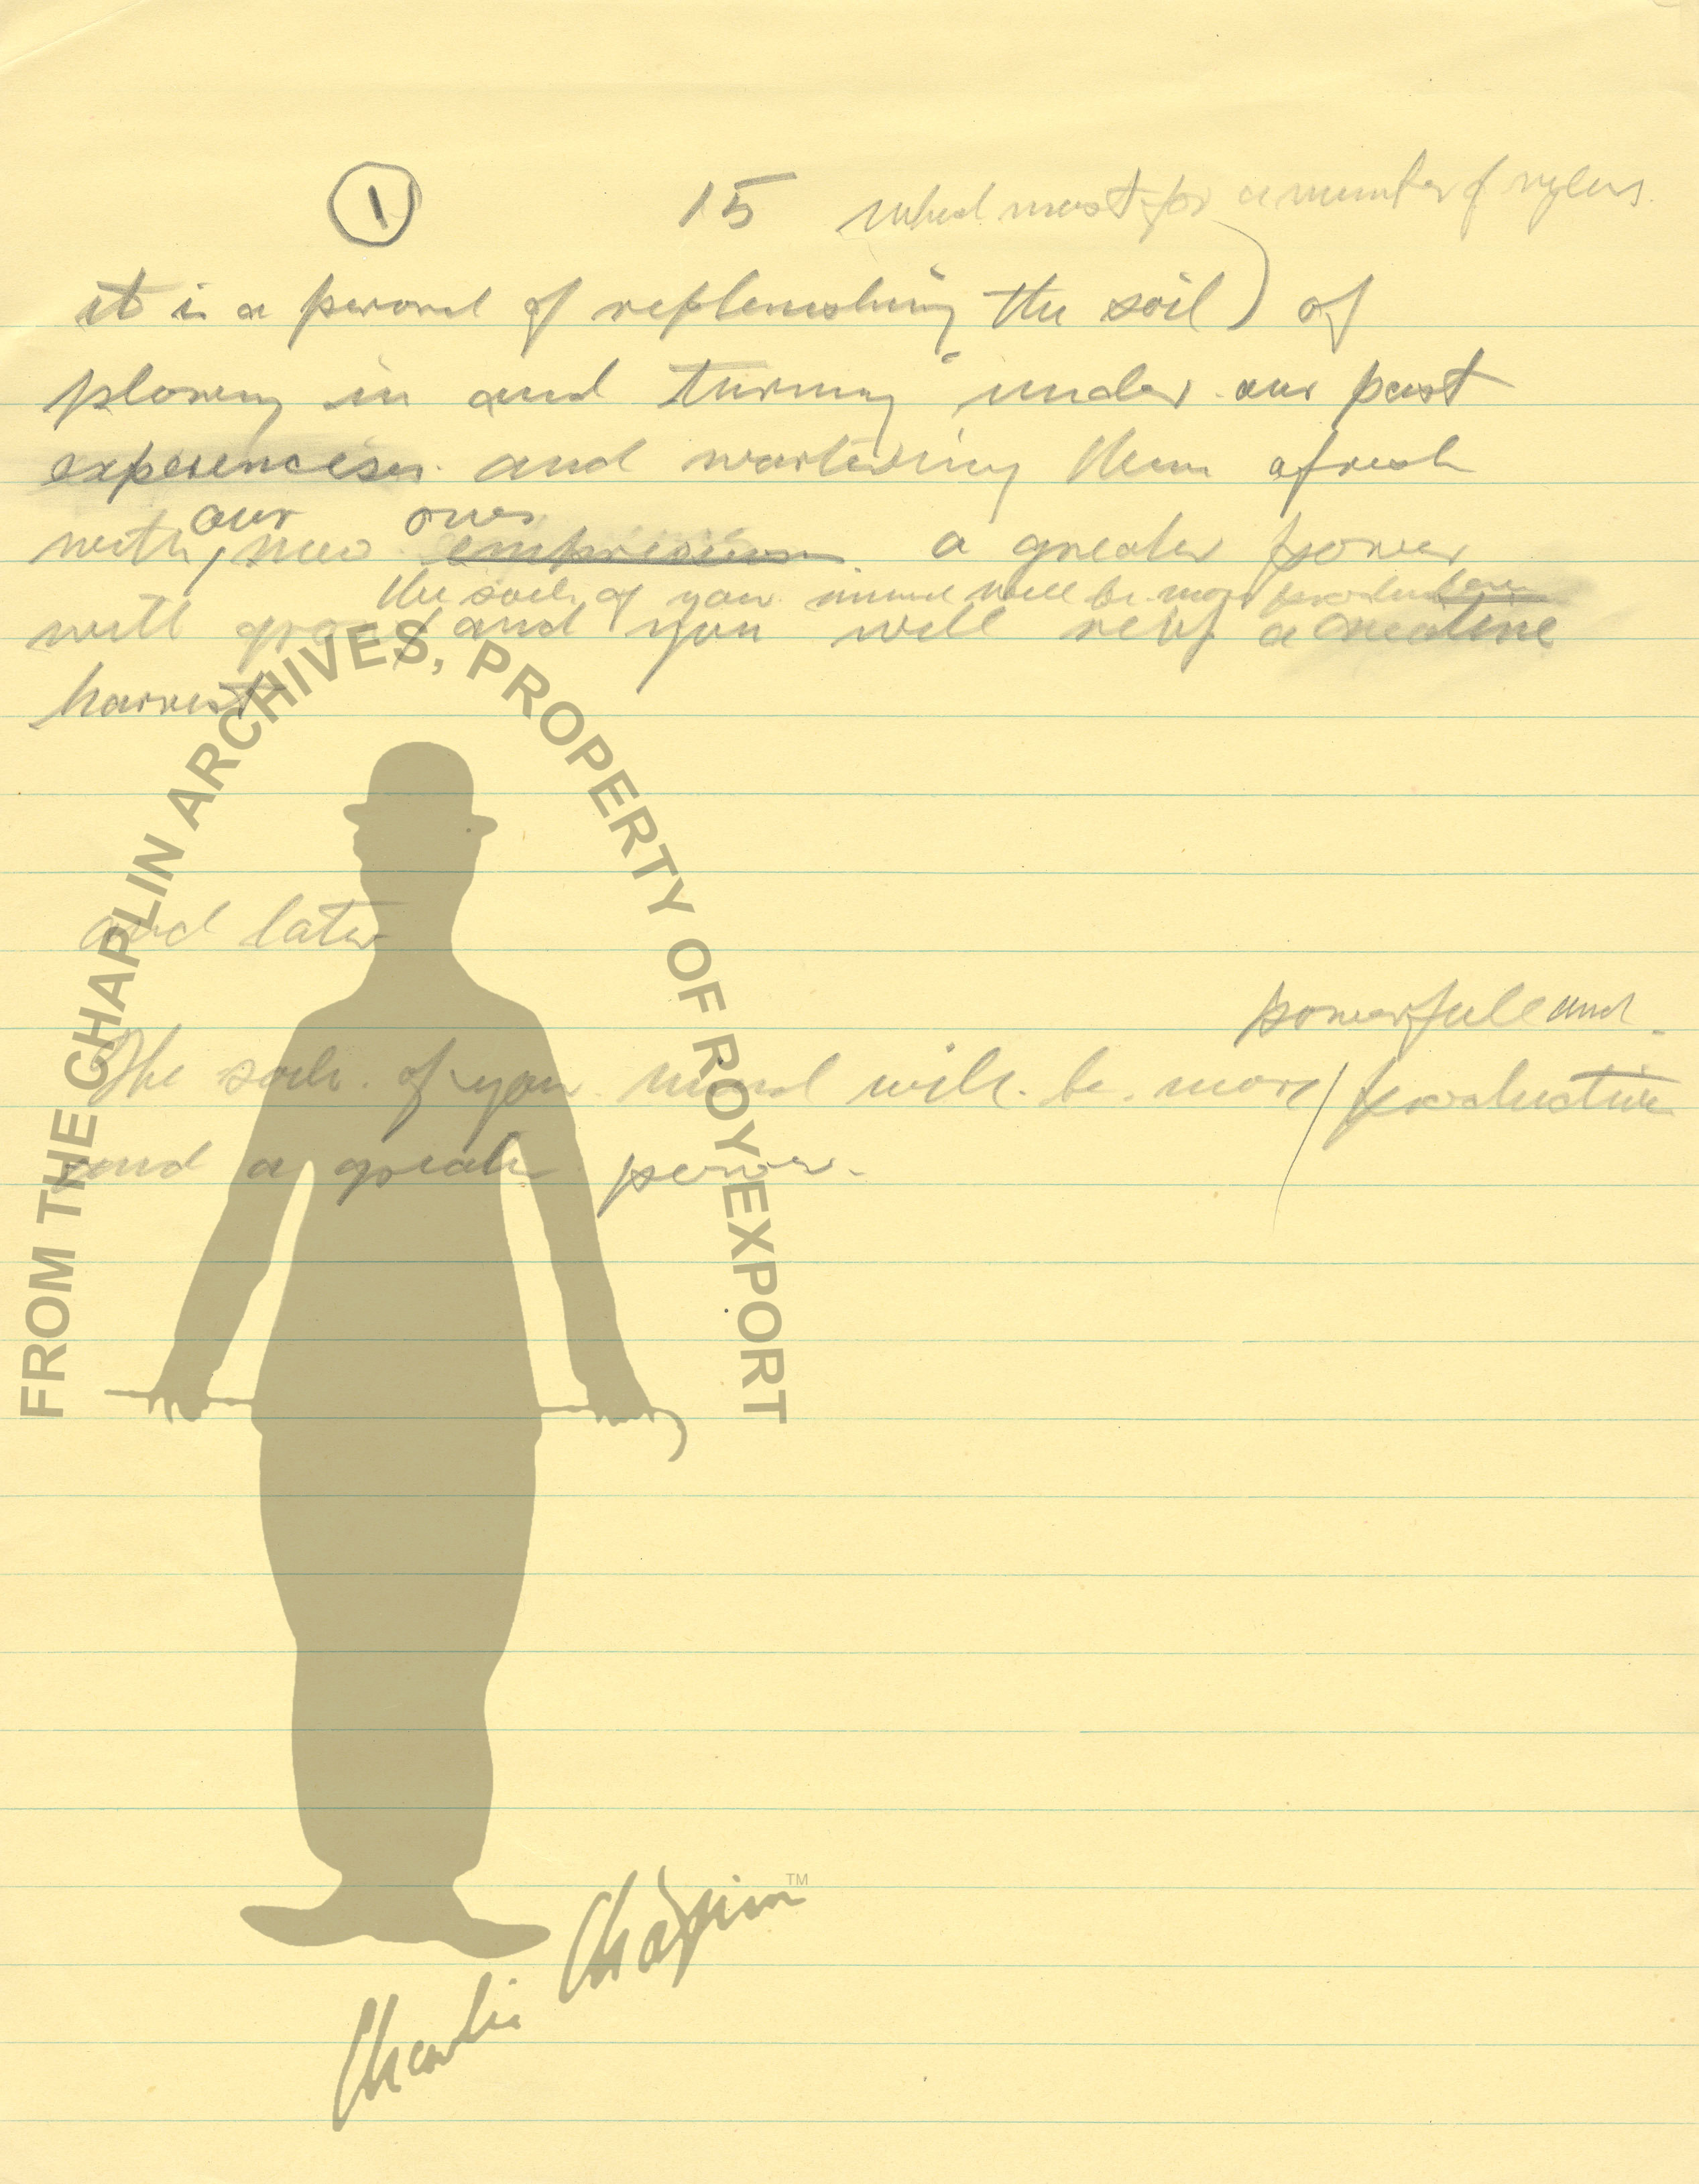 1 15 what most for a number of
it is a peroid of replenishing the soil) of
plowing in and turning under our past
experiences and wartering them afresh
our ones
with, new a greater power
the soil of your mind will be more
will grow and you will reap a creative
harvest
and later
powerfull and
The soil of your mind will be more / productive
and a greater power.
FROM THE CHAPLIN ARCHIVES, PROPERTY OF ROY EXPORT
Charlie Chaplin TM